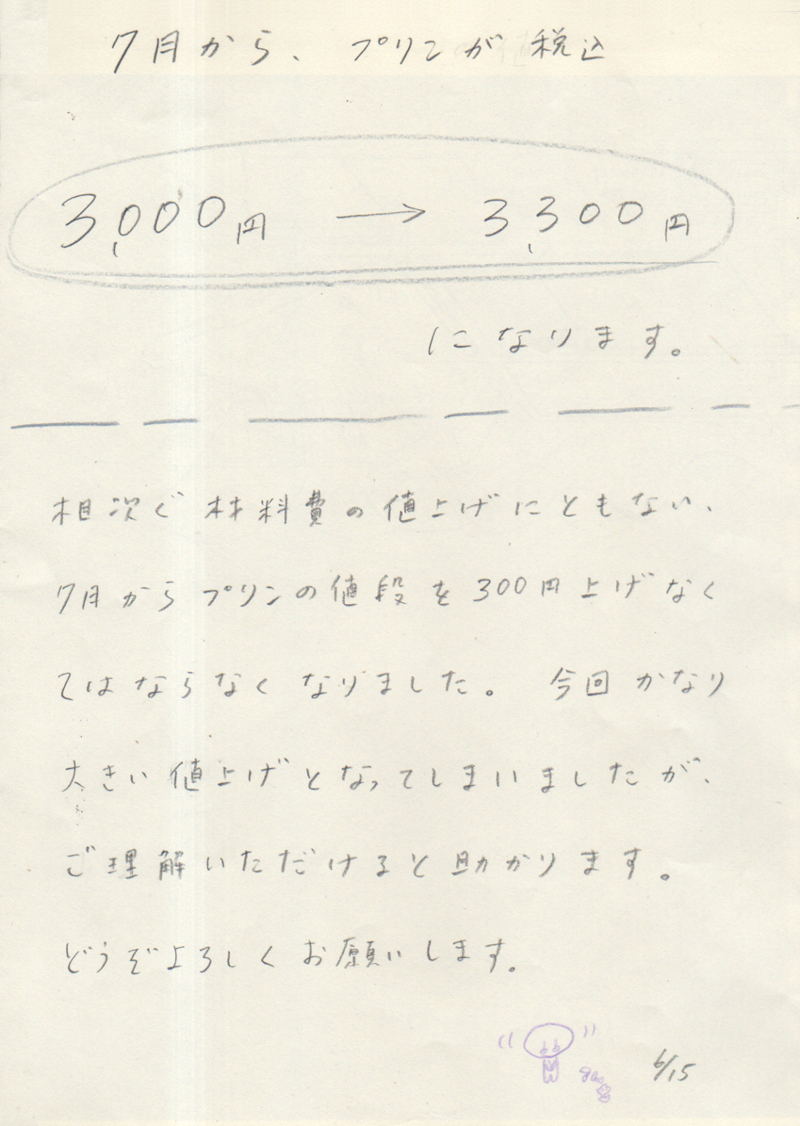 7月から、プリンが税込
3,000円 → 3,300円
になります。
相次ぐ材料費の値上げにともない、
7月からプリンの値段を300円上げなく
てはならなくなりました。 今回かなり
大きい値上げとなってしまいましたが、
ご理解いただけると助かります。
どうぞよろしくお願いします。
6/15